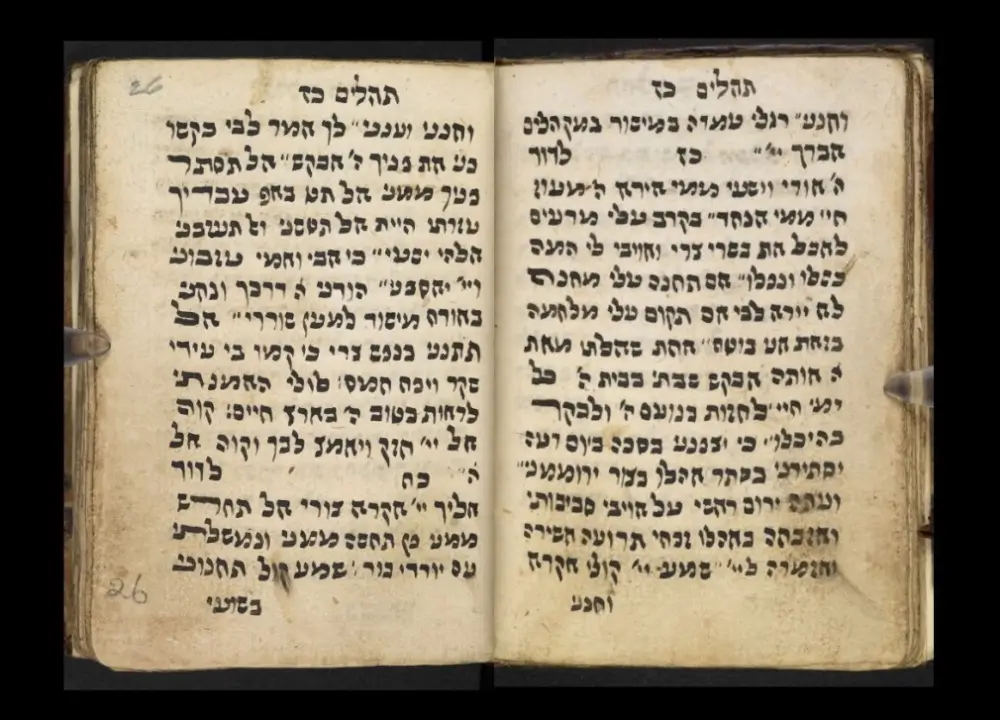 תהלים כז
וחנני״ רגלי עמדה במישור במקהלים
אברך יי״ כז לדוד
ה׳ אורי וישעי ממי אירא ה׳ מעוז
חיי ממי אפחד״ בקרב עלי מרעים
לאכל את בשרי צרי ואויבי לי המה
כשלו ונפלו״ אם תחנה עלי מחנה
לא יירא לבי אם תקום עלי מלחמה
בזאת אני בוטח״ אחת שאלתי מאת
ה׳ אותה אבקש שבתי בבית ה׳ כל
ימי חיי לחזות בנועם ה׳ ולבקר
בהיכלו״ כי יצפנני בסכה ביום רעה
יסתירני בסתר אהלו בצור ירוממני״
ועתה ירום ראשי על אויבי סביבותי
ואזבחה באהלו זבחי תרועה אשירה
ואזמרה ליי״ שמע יי׳ קולי אקרא
וחנני
26
תהלים כז
וחנני וענני״ לך אמר לבי בקשו
פני את פניך ה׳ אבקש״ אל תסתר
פניך ממני אל תט באף עבדיך
עזרתי היית אל תטשני ול תעזבני
אלהי ישעי״ כי אבי ואמי עזבוני
ויי׳ יאספני״ הורני ה דרכך ונחני
באורח מישור למען שוררי״ אל
תתנני בנפש צרי כי קמו בי עידי
שקר ויפח חמס: לולי האמנתי
לראות בטוב ה׳ בארץ חיים: קוה
אל יי׳ חזק ויאמצ לבך וקוה אל
ה״ כח לדוד
אליך יי׳ אקרא צורי אל תחרש
ממני פן תחשה ממני ונמשלתי
עם יורדי בור: שמע קול תחנוני
בשועי
26